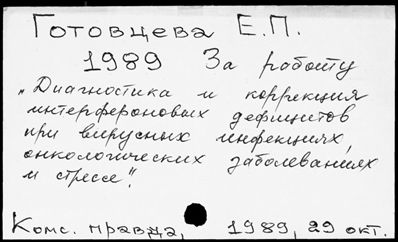 Готовцева Е.П.
1989 За работу
„Диагностика и коррекция
интерфероновых дефицитов
при вирусных инфекциях,
онкологических заболеваниях
и стрессе".
Комс. правда, 1989, 29 окт.